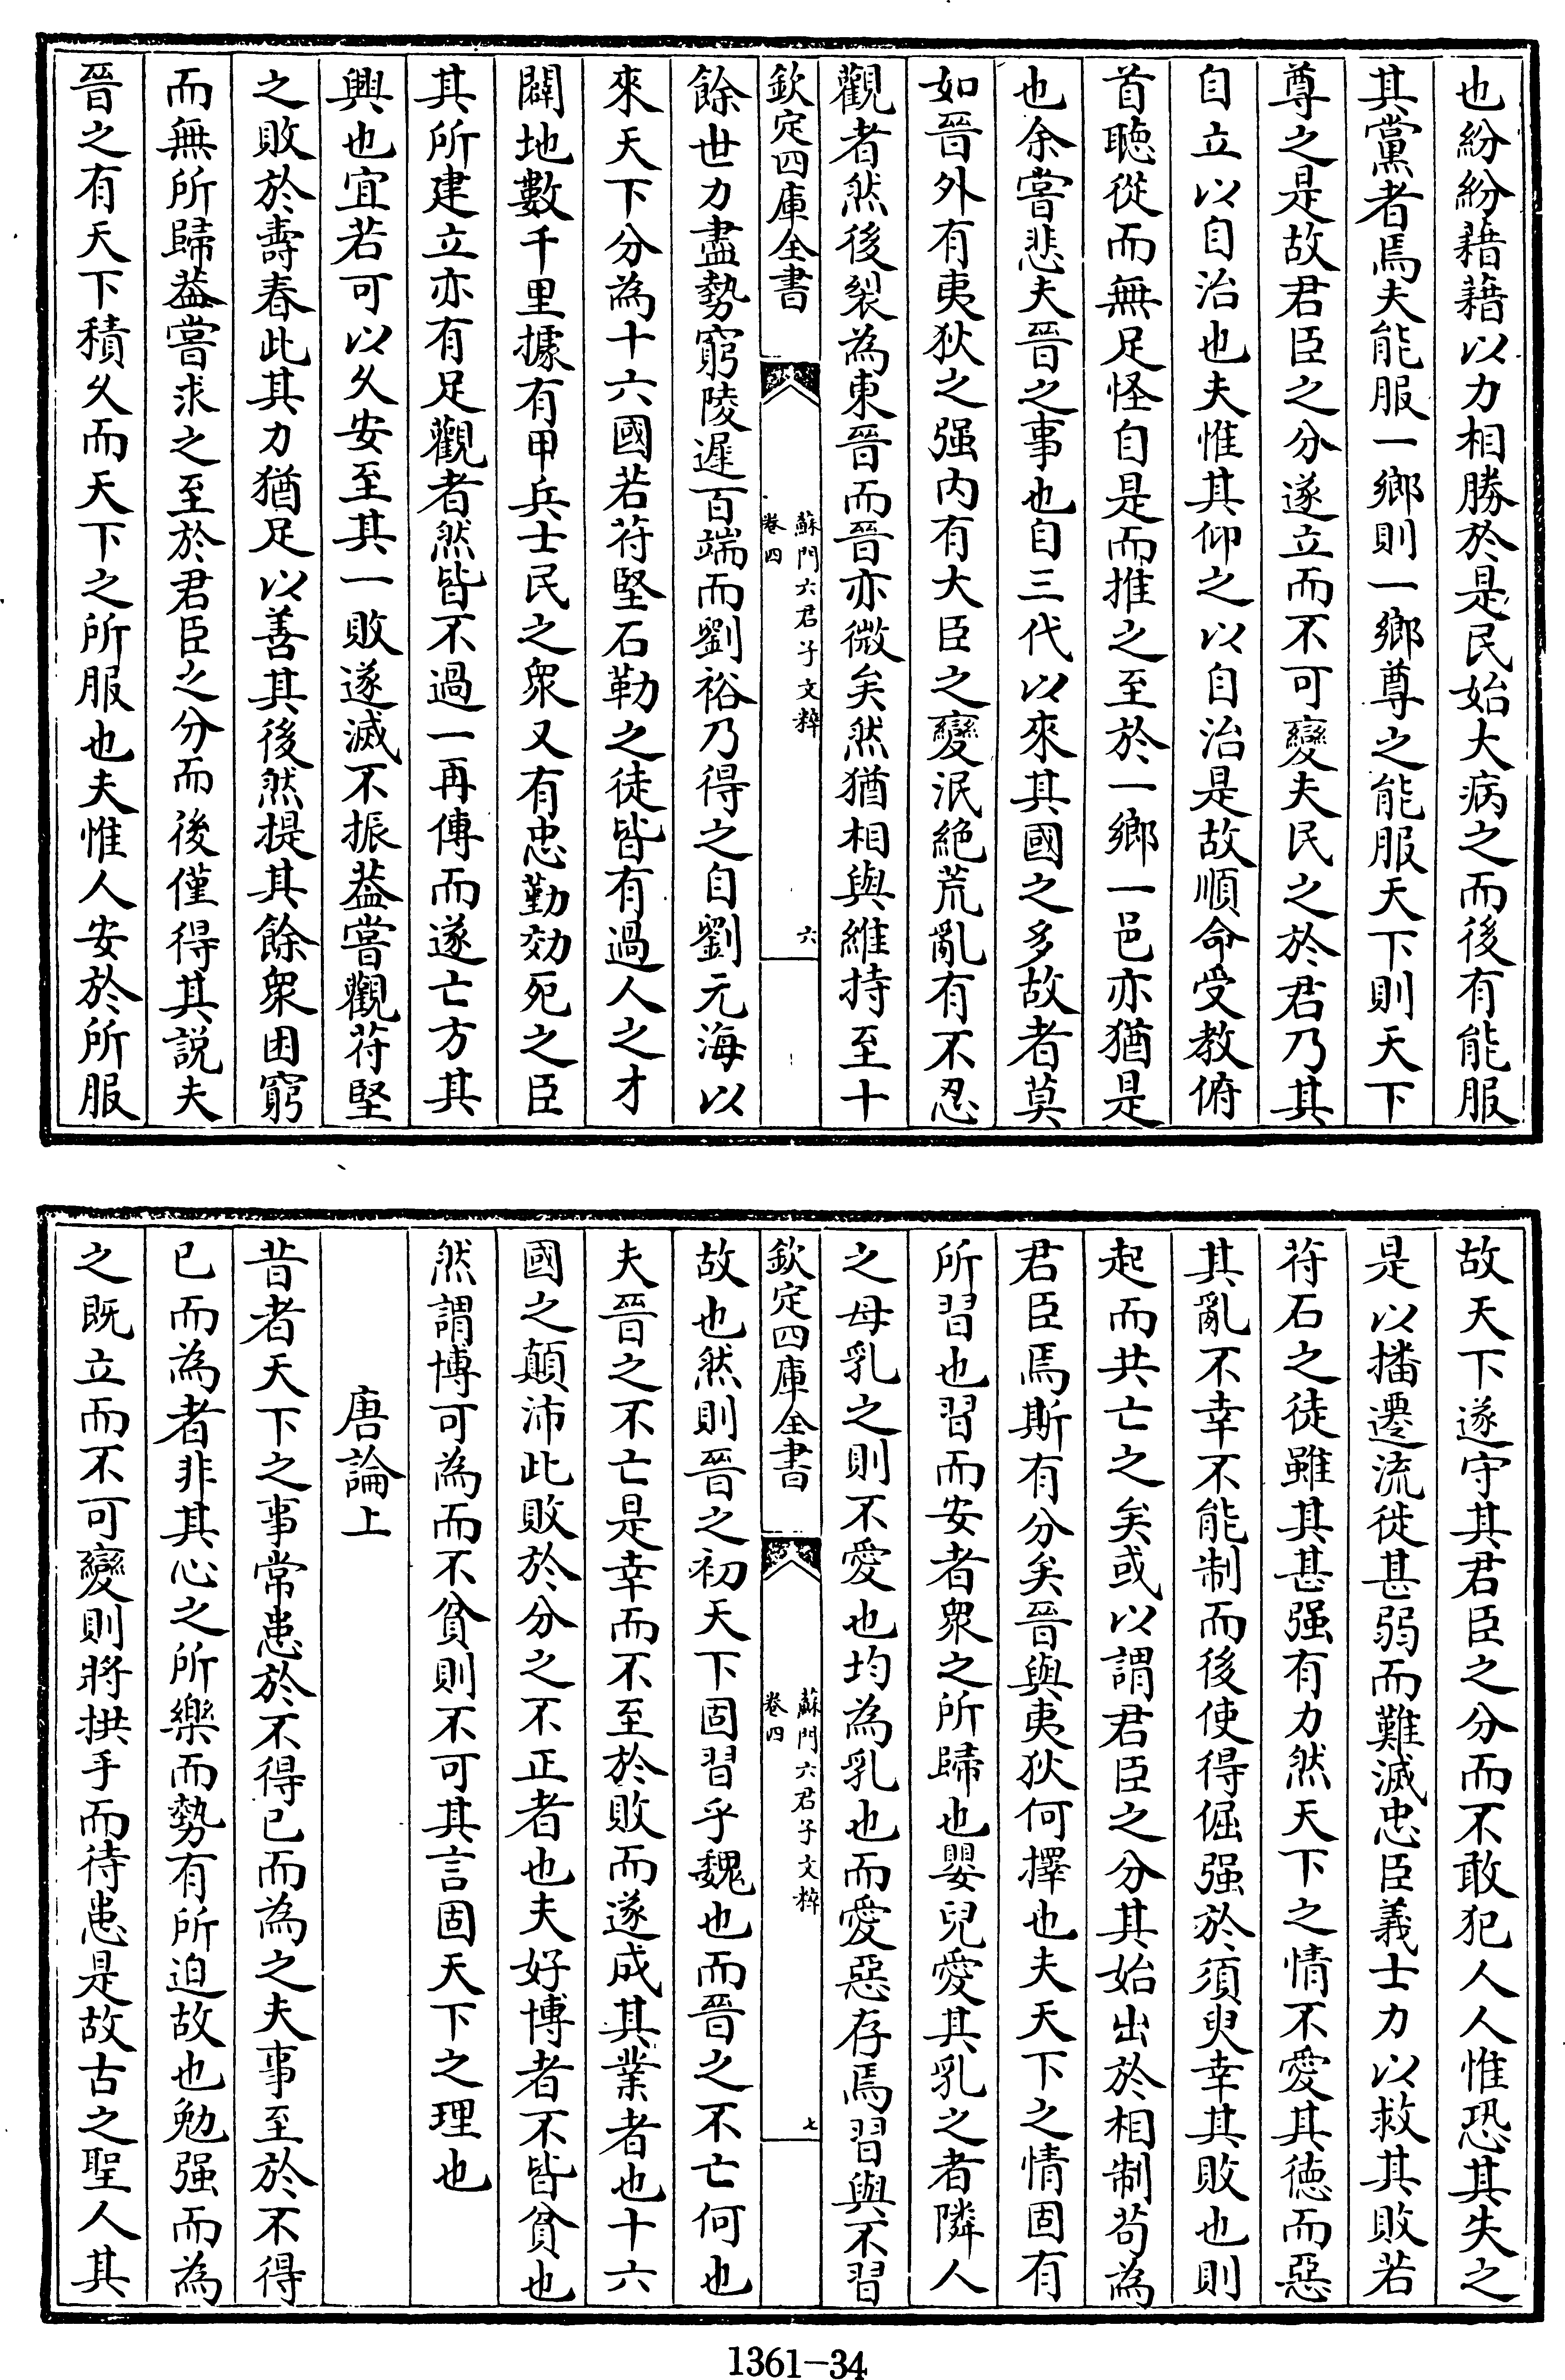 也紛紛藉藉以力相勝於是民始大病之而後有能服
其黨者焉夫能服一鄉則一鄉尊之能服天下則天下
尊之是故君臣之分遂立而不可變夫民之於君乃其
自立以自治也夫惟其仰之以自治是故順命受教俯
首聴從而無足怪自是而推之至於一鄉一邑亦猶是
也余嘗悲夫晉之事也自三代以來其國之多故者莫
如晉外有夷狄之强内有大臣之變泯絶荒亂有不忍
觀者然後裂為東晉而晉亦微矣然猶相與維持至十
欽定四庫全書
蘇門六君子文粹
卷四
六
餘世力盡勢窮陵遲百端而劉裕乃得之自劉元海以
來天下分為十六國若苻堅石勒之徒皆有過人之才
闢地數千里據有甲兵士民之衆又有忠勤効死之臣
其所建立亦有足觀者然皆不過一再傳而遂亡方其
興也宜若可以久安至其一敗遂滅不振葢嘗觀苻堅
之敗於壽春此其力猶足以善其後然提其餘衆困窮
而無所歸葢嘗求之至於君臣之分而後僅得其説夫
晉之有天下積久而天下之所服也夫惟人安於所服
故天下遂守其君臣之分而不敢犯人人惟恐其失之
是以播遷流徙甚弱而難滅忠臣義士力以救其敗若
苻石之徒雖其甚强有力然天下之情不愛其徳而惡
其亂不幸不能制而後使得倔强於須臾幸其敗也則
起而共亡之矣或以謂君臣之分其始出於相制苟為
君臣焉斯有分矣晉與夷狄何擇也夫天下之情固有
所習也習而安者衆之所歸也嬰兒愛其乳之者隣人
之母乳之則不愛也均為乳也而愛惡存焉習與不習
欽定四庫全書
蘇門六君子文粹
卷四
七
故也然則晉之初天下固習乎魏也而晉之不亡何也
夫晉之不亡是幸而不至於敗而遂成其業者也十六
國之顛沛此敗於分之不正者也夫好博者不皆貧也
然謂博可為而不貧則不可其言固天下之理也
唐論上
昔者天下之事常患於不得已而為之夫事至於不得
已而為者非其心之所樂而勢有所迫故也勉强而為
之既立而不可變則將拱手而待患是故古之聖人其
1361-34